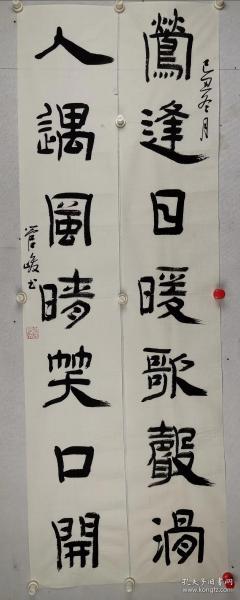 己丑冬月
鶯逢日暖歌聲滑
人遇風晴笑口開
管峻书
孔夫子旧书网